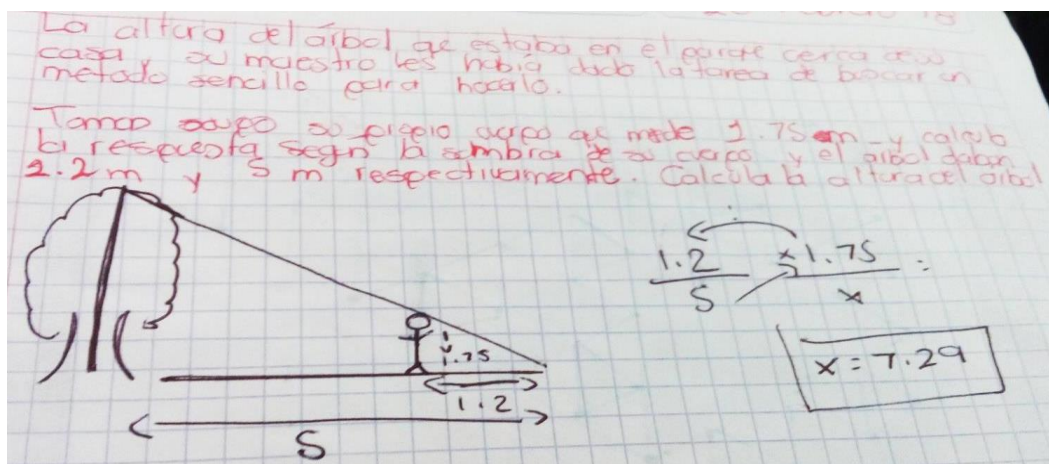 La altura del árbol qe estaba en el parque cerca de su
casa, su maestro les había dado la tarea de buscar un
metodo sencillo para hacerlo.
Tomao su propio cuerpo qe mide 1.75 m y calculo
la respuesta segn la sombra de su cuerpo y el arbol daban
1.2 m y 5 m respectivamente. Calcula la altura del arbol
1.75
1.2
5
1.2 1.75
5 x =
x = 7.29